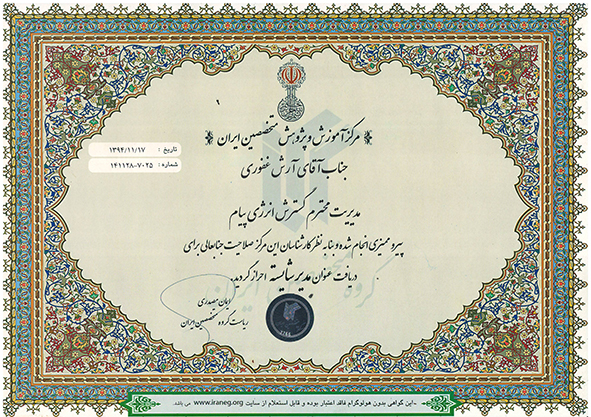 مرکز آموزش و پژوهش متخصصین ایران
تاریخ : ۱۳۹۴/۱۱/۱۷
شماره : ۱۴۱۱۲۸-۷۰۲۵
جناب آقای آرش غفوری
مدیریت محترم گسترش انرژی پیام
پیرو ممیزی انجام شده و بنا به نظر کارشناسان این مرکز صلاحیت جنابعالی برای
دریافت عنوان مدیر شایسته احراز گردید.
ریاست گروه متخصصین ایران
-این گواهی بدون هولوگرام فاقد اعتبار بوده و قابل استعلام از سایت www.iraneg.org می باشد.